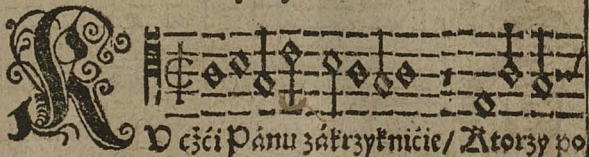 KV cżći Pánu zákrzyknićie/ Ktorzy po